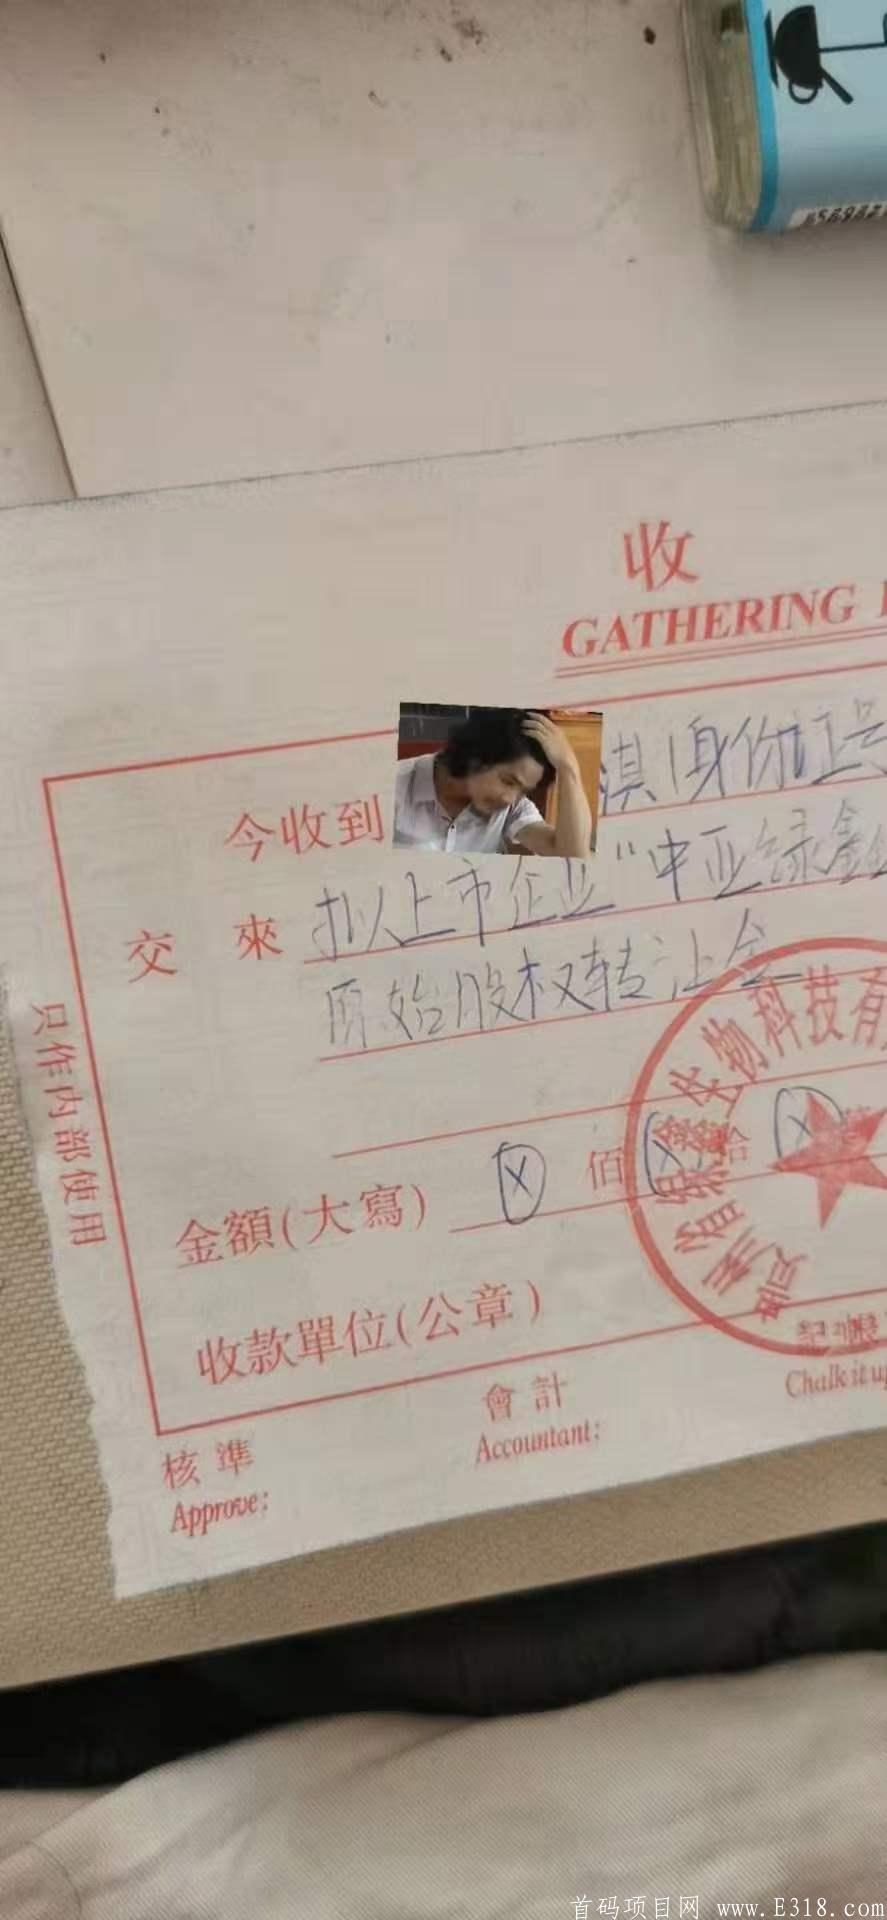 收
GATHERING
今收到 淇(身份证号
交 來 拟上市企业“中亚绿鑫
原始股权转让金
金額(大寫) ⓧ 佰 ⓧ 拾 ⓧ
收款單位(公章)
生物科技有
貴州省
核準
Approve:
會計
Accountant:
記賬
Chalk it up
只作内部使用
首码项目网 www.E318.com